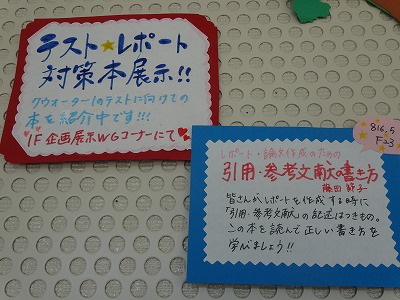 テスト★レポート
対策本展示!!
クウォーター1のテストに向けての
本を紹介中です!!!
1F 企画展示WGコーナーにて
816.5
F-23
レポート・論文作成のための
引用・参考文献の書き方
藤田節子
皆さんがレポートを作成する時に
「引用・参考文献」の記述はつきもの。
この本を読んで正しい書き方を
学びましょう!!